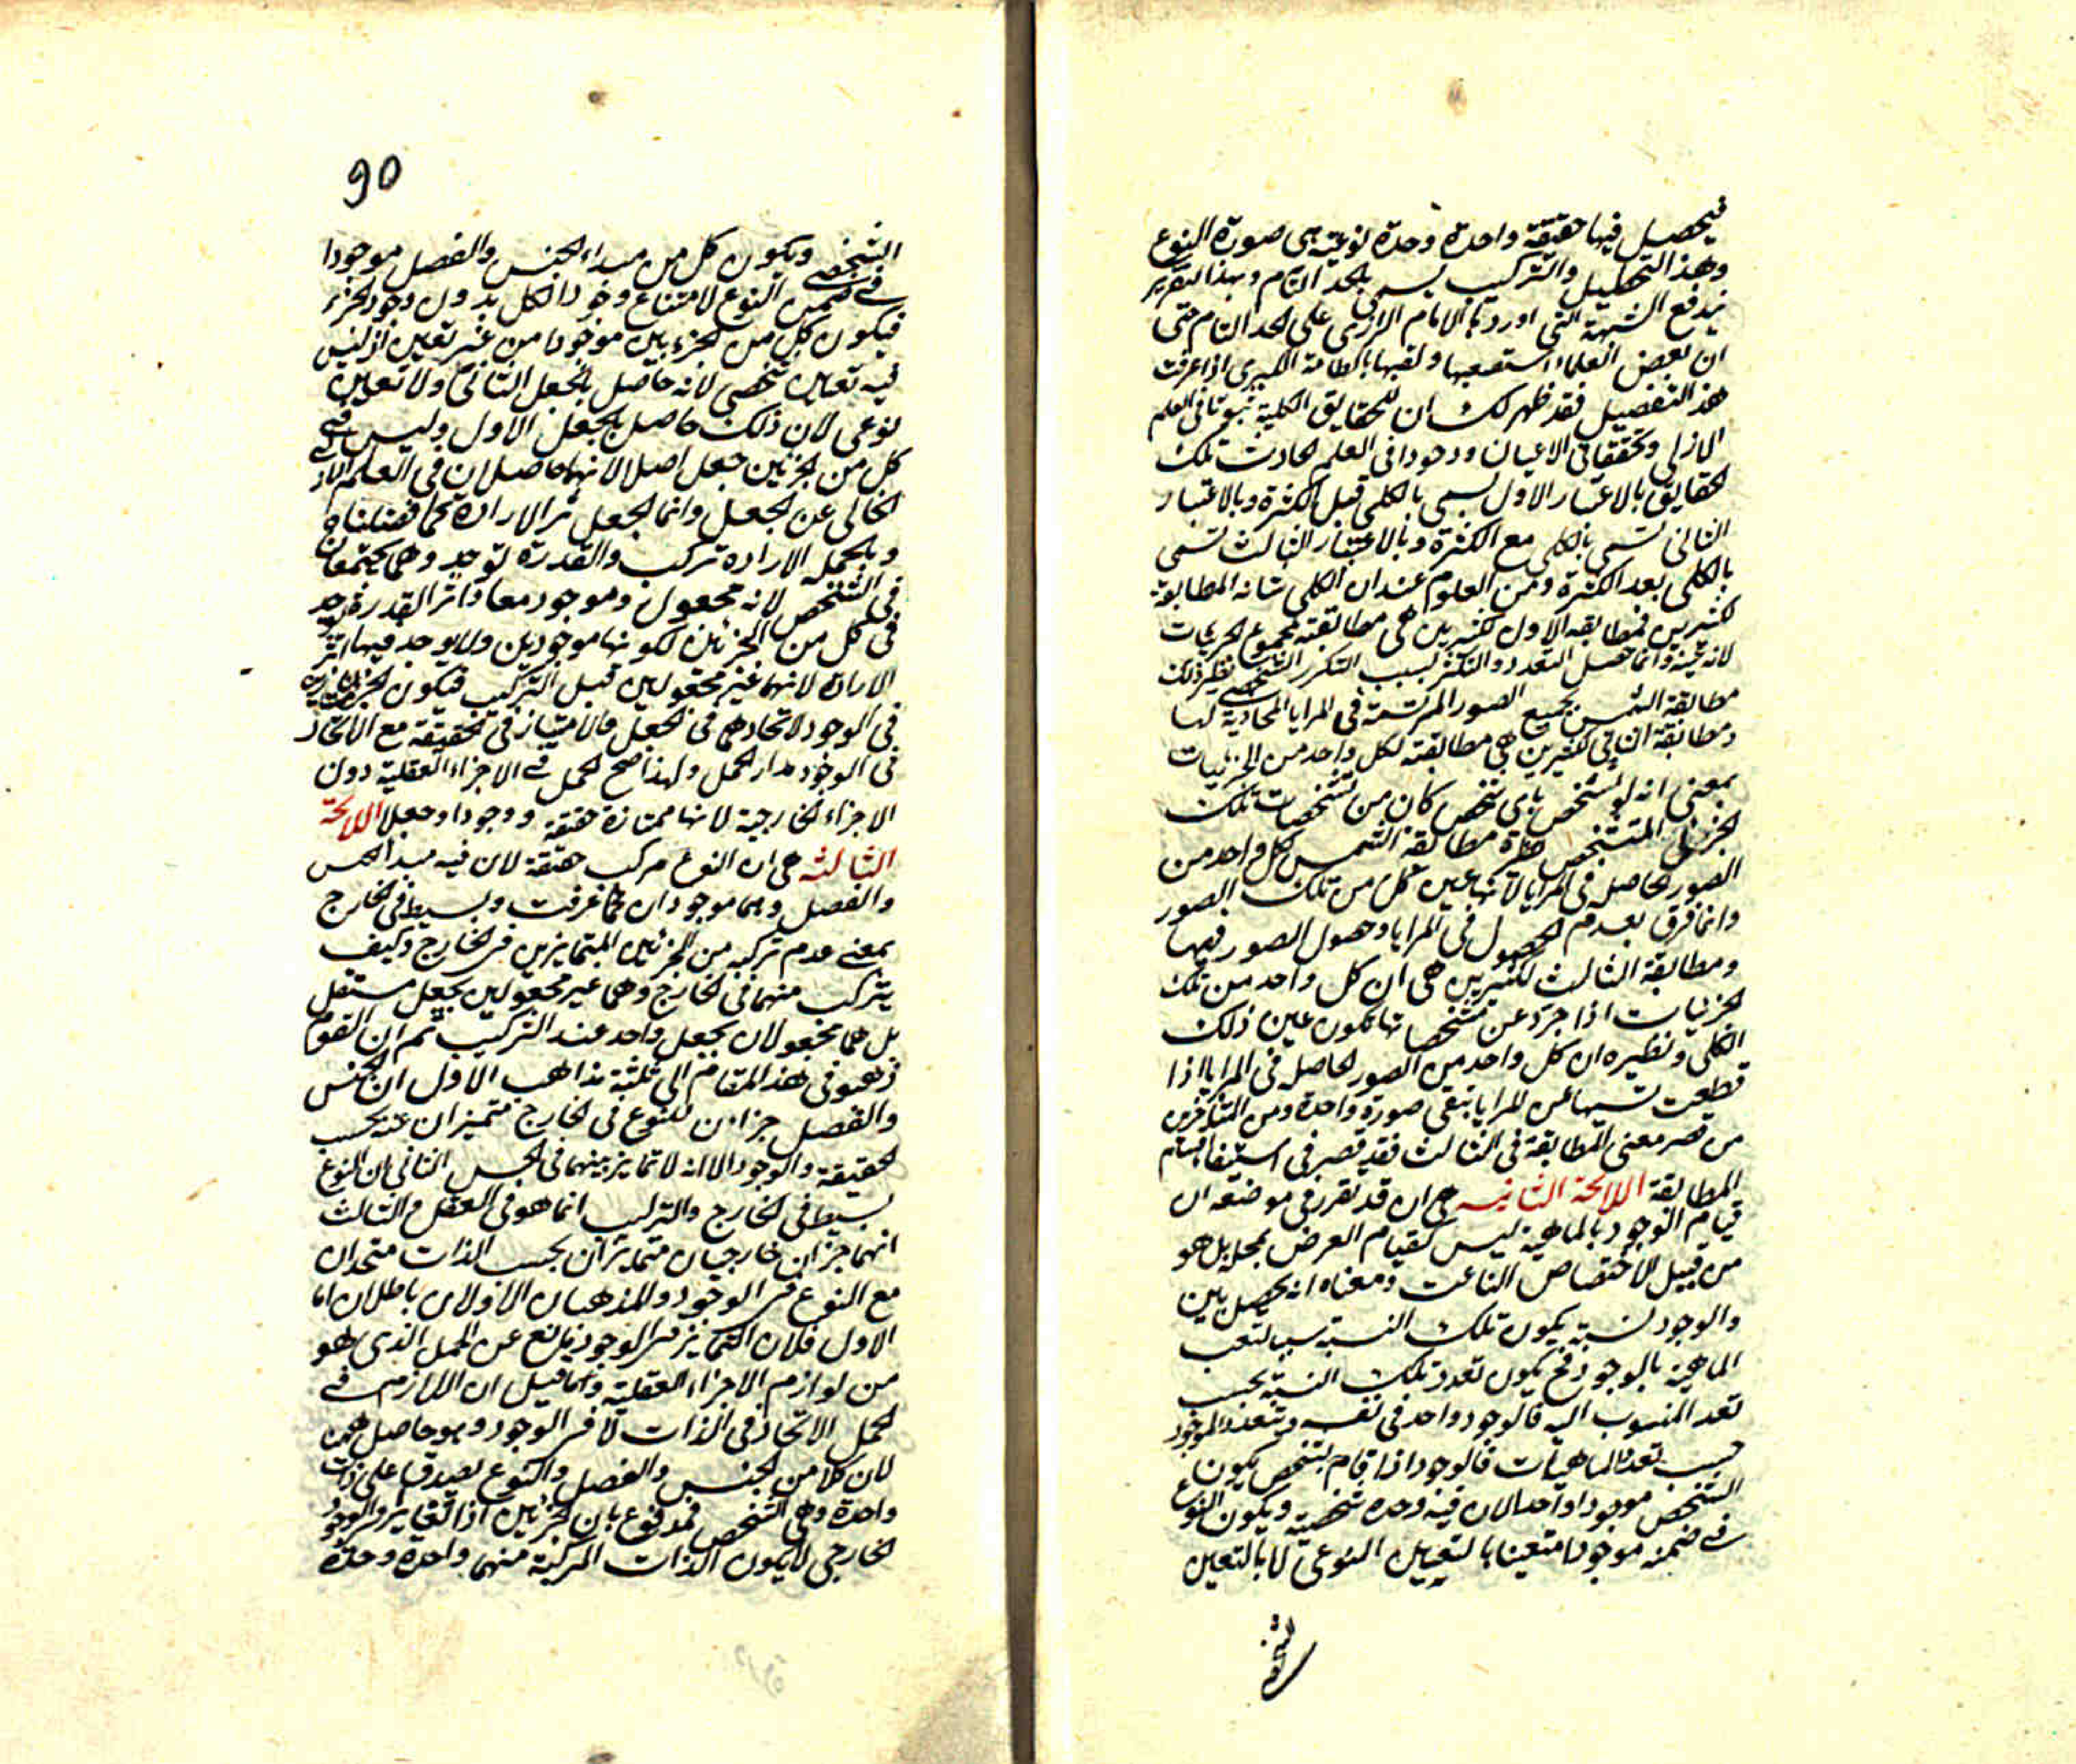 فيحصل فيها حقيقة واحدة وحدة نوعية هى صورة النوع
وهذا التحليل والتركيب يسمى بالحد التام وبهذا التقرير
يندفع الشبهة التى اوردها الامام الرازى على الحد التام حتى
ان بعض العلماء استصعبها ولقبها بالطامة الكبرى اذا عرفت
هذا التفصيل فقد ظهر لك ان للحقايق الكلية ثبوتا فى العلم
الازلى وتحققا فى الاعيان ووجودا فى العلم الحادث تلك
الحقايق بالاعتبار الاول يسمى بالكلى قبل الكثرة وبالاعتبار
الثانى تسمى بالكلى مع الكثرة وبالاعتبار الثالث تسمى
بالكلى بعد الكثرة ومن المعلوم عند ان الكلى شانه المطابقة
لكثيرين فمطابقة الاول لكثيرين هى مطابقته لمجموع الجزئيات
لانه عينه وانما حصل التعدد والتكثر بسبب التكرر الشخصى نظير ذلك
مطابقة الشمس بجميع الصور المرتسمة فى المرايا المحاذية لها
ومطابقة الثانى لكثيرين هى مطابقته لكل واحد من الجزئيات
بمعنى انه لو تشخص باى تشخص كان من تشخصات تلك
الجزئى المتشخص مطابقة الشمس لكل واحد من
الصور الحاصلة فى المرايا لانها عين كل من تلك الصور
وانما فرق بعدم الحصول فى المرايا وحصول الصور فيها
ومطابقة الثالث لكثيرين هى ان كل واحد من تلك
الجزئيات اذا جرد عن تشخصاتها تكون عين ذلك
الكلى ونظيره ان كل واحد من الصور الحاصلة فى المرايا اذا
قطعت نسبتها عن المرايا تبقى صورة واحدة ومن المتاخرين
من قصر معنى المطابقة فى الثالث فقد قصر فى استيفا اقسام
المطابقة اللائحة الثانيه هى ان قد تقرر فى موضعه ان
قيام الوجود بالماهية ليس كقيام العرض بمحله بل هو
من قبيل الاختصاص الناعت ومعناه انه يحصل بين
والوجود نسبة يكون تلك النسبة سببا لتعب
الماهية بالوجود فح يكون تعدد تلك النسبة بحسب
تعدد المنسوب اليه فالوجود واحد فى نفسه ويتعدد الموجود
بحسب تعدد الماهيات فالوجود اذا قام بتشخص يكون
الشخص موجودا واحدا لان فيه وحدة شخصية ويكون النوع
فى ضمنه موجودا متعينا بالتعين النوعى لا بالتعين
الشخصى
90
الشخصى ويكون كل من مبداء الجنس والفصل موجودا
فى ضمن النوع لامتناع وجود الكل بدون وجود الجزء
فيكون كل من الجزءين موجودا من غير تعين اذ ليس
فيه تعين شخصى لانه حاصل بالجعل الثانى ولا تعين
نوعى لان ذلك حاصل بالجعل الاول وليس فى
كل من الجزئين جعل اصلا لانهما حاصلان فى العلم الازلى
الخالى عن الجعل وانما الجعل اثر الارادة كما فصلناه
وبالجملة الارادة تركيب والقدرة توحيد وهما يجتمعان
فى الشخص لانه مجعول وموجود معا واثر القدرة يوجد
فى كل من الجزئين لكونها موجودين ولا يوجد فيها اثر
الارادة لانهما غير مجعولين قبل التركيب فيكون
فى الوجود لاتحادهما فى الجعل فالامتياز فى الحقيقة مع الاتحاد
فى الوجود مدار الحمل ولهذا صح الحمل فى الاجزاء العقلية دون
الاجزاء الخارجية لانها ممتازة حقيقة ووجودا وجعلا اللائحة
الثالثه هى ان النوع مركب حقيقة لان فيه مبدا الجنس
والفصل وهما موجودان كما عرفت وبسيط فى الخارج
بمعنى عدم تركبه من الجزئين المتمايزين فى الخارج وكيف
يتركب منهما فى الخارج وهما غير مجعولين بجعل مستقل
بل هما مجعولان بجعل واحد عند التركيب ثم ان القوم
ذهبوا فى هذا المقام الى ثلثة مذاهب الاول ان الجنس
والفصل جزان للنوع فى الخارج متميزان عنه بحسب
الحقيقة والوجود الا انه لا تمايز بينهما فى الحس الثانى ان النوع
بسيط فى الخارج والتركيب انما هو فى العقل والثالث
انهما جزان خارجيان متمايزان بحسب الذات متحدان
مع النوع فى الوجود والمذهبان الاولان باطلان اما
الاول فلان التمايز فى الوجود يمانع عن الحمل الذى هو
من لوازم الاجزاء العقلية وما قيل ان اللازم فى
الحمل الاتحاد فى الذات لا فى الوجود وهو حاصل ههنا
لان كلا من الجنس والفصل والنوع يصدق على ذات
واحدة وهى الشخص فمدفوع بان الجزئين اذا تغايرا فى الوجود
الخارجى لا يكون الذات المركبة منهما واحدة وحدة